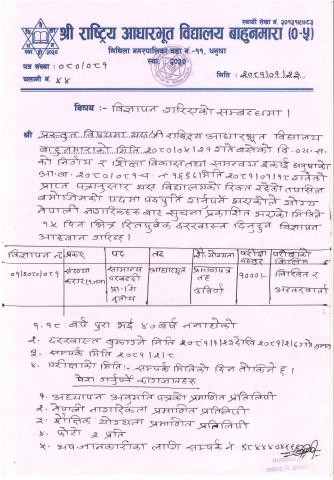 स्थायी लेखा नं. ३०१३१८७८३
श्री राष्ट्रिय आधारभूत विद्यालय बाहुनमारा (०-५)
मिथिला नगरपालिका वडा नं -११, धनुषा
स्था. : २०३०
पत्र संख्या : ०८०/०८१
चलानी नं. ४४
मिति : २०८१/०१/२२
विषय:- विज्ञापन गरिएको सम्बन्धमा।
श्री प्रस्तुत विषयमा यस श्री राष्ट्रिय आधारभूत विद्यालय
बाहुनमाराको मिति २०८०/ गते बसेको वि.व्य.स.
को निर्णय र शिक्षा विकास तथा समन्वय इकाई धनुषाको
आ.व. २०८०/०८१ च.नं १६६८ मिति २०८१/०१/१८ गतेको
प्राप्त पत्रानुसार यस विद्यालयको रिक्त रहेको तपसिल
बमोजिमको पदमा पदपूर्ति गर्नुपर्ने भएकोले योग्य
नेपाली नागरिकहरू बाट सूचना प्रकाशित भएको मितिले
१५ दिन भित्र रितपुर्वक दरखास्त दिनुहुन विज्ञापन
आह्वान गरिन्छ।
विज्ञापन नं प्रकार पद तह शै. योग्यता परीक्षा दस्तुर परीक्षाको किसिम
०१/२०८०/०८१ सामान्य प्रा.वि तृतीय आधारभूत प्रमाणपत्र तह उत्तिर्ण १०००/- लिखित र अन्तरवार्ता
१. १८ वर्ष पुरा भई ४० वर्ष ननाघेको
२. दरखास्त बुझाउने मिति २०८१/१/२३ देखि २०८१/२/६ गते
३. सम्पर्क मिति २०८१/२/८
४. परीक्षाको मिति:- सम्पर्क मितिको दिन तोकिने छ।
पेश गर्नुपर्ने कागजातहरू
१. अध्यापन अनुमति पत्रको प्रमाणित प्रतिलिपी
२. नेपाली नागरिकता प्रमाणित प्रतिलिपी
३. शैक्षिक योग्यता प्रमाणित प्रतिलिपी
४. फोटो २ प्रति
५. थप जानकारीका लागि सम्पर्क नं